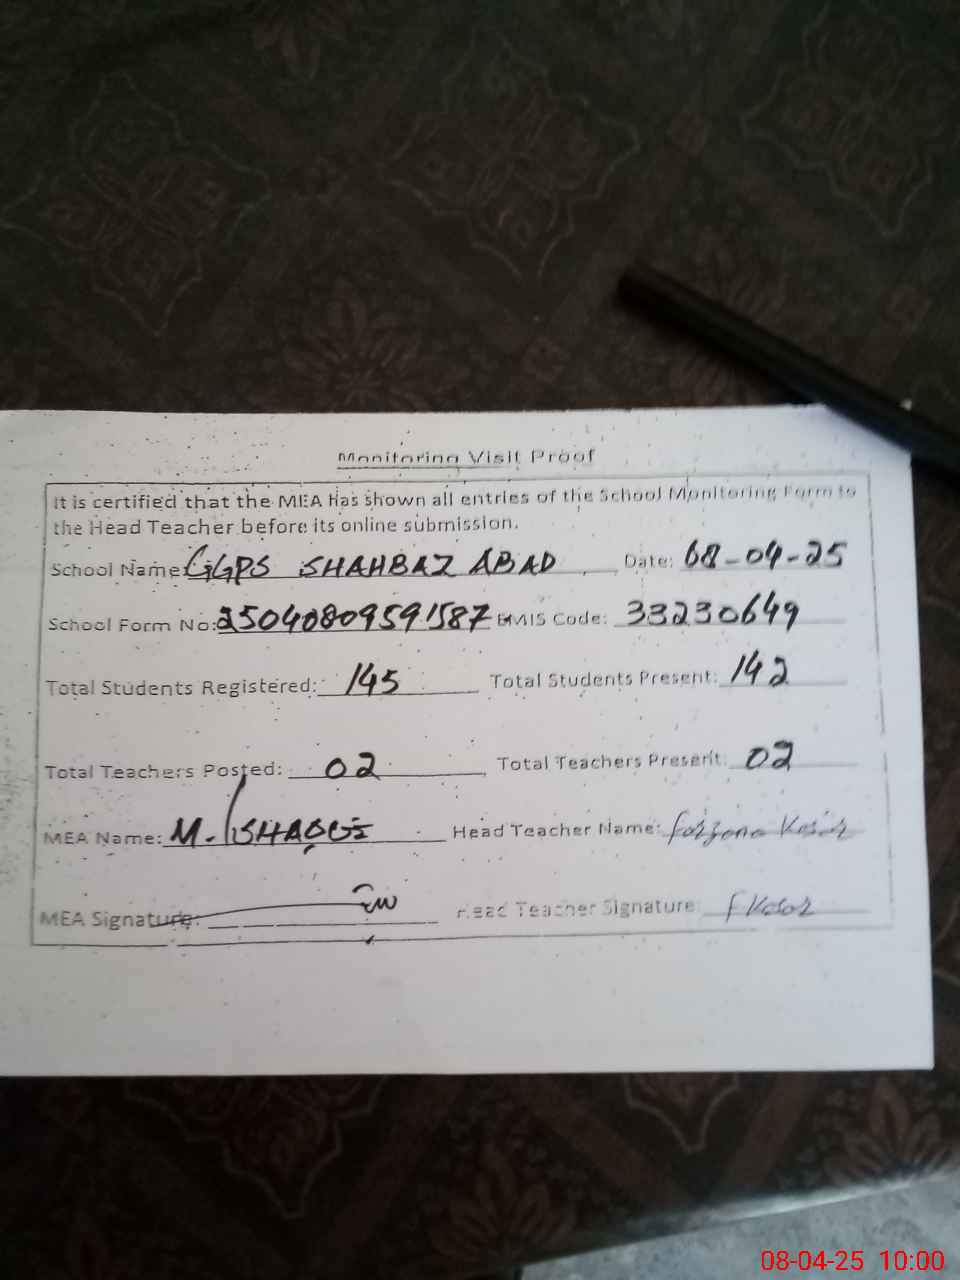 Monitoring Visit Proof
It is certified that the MEA has shown all entries of the School Monitoring Form to
the Head Teacher before its online submission.
School Name: GGPS SHAHBAZ ABAD Date: 08-04-25
School Form No: 25040809591587 EMIS Code: 33230649
Total Students Registered: 145 Total Students Present: 142
Total Teachers Posted: 02 Total Teachers Present: 02
MEA Name: M. ISHAQUE Head Teacher Name: Farzana Kosar
MEA Signature: Head Teacher Signature: F Kosar
08-04-25 10:00